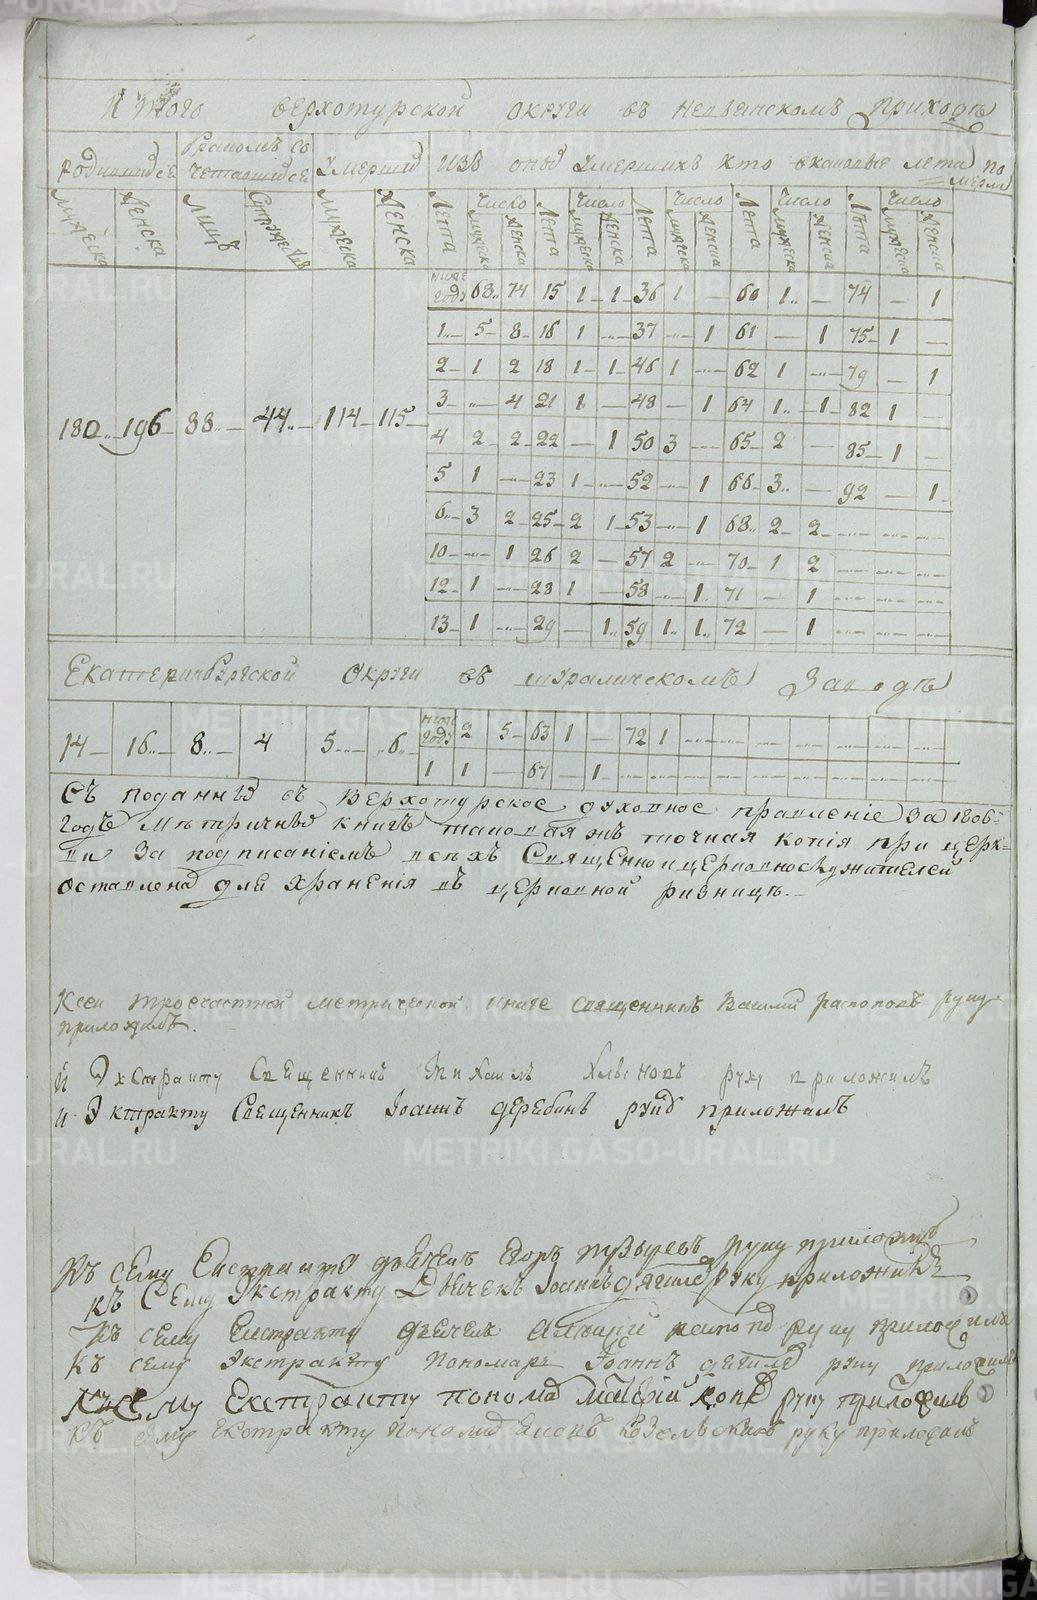 Итого верхотурской округи въ невьянскомъ приходѣ
родившихся
бракомъ сочетавшихся
умерших
изъ оных умершихъ кто в каковые лета померли
мужеска женска лицъ супружествъ мужеска женска
лета число мужеска женска лета число мужеска женска лета число мужеска женска лета число мужеска женска лѣта число мужеска женска
180 196 88 44 114 115
ниже года 68 74 15 1 1 36 1 — 60 1 — 74 — 1
1 5 8 16 1 — 37 — 1 61 — 1 75 1 —
2 1 2 18 1 1 46 1 — 62 1 — 79 — 1
3 — 4 21 1 — 48 — 1 64 1 1 82 1 —
4 2 2 22 — 1 50 3 — 65 2 — 85 1 —
5 1 — 23 1 — 52 — 1 66 3 — 92 — 1
6 3 2 25 2 1 53 — 1 68 2 2 — — —
10 — 1 26 2 — 57 2 — 70 1 2 — — —
12 1 — 28 1 — 58 — 1 71 — 1 — — —
13 1 — 29 — 1 59 1 1 72 — 1 — — —
Екатеринбургской округи въ шуралинскомъ Заводѣ
14 16 8 4 5 6
ниже года 2 5 63 1 — 72 1 —
1 1 — 67 — 1 — —
Съ поданных въ Верхотурское духовное правленіе за 1806
годъ мѣтричныхъ книгъ таковая жъ точная копія при церк-
ви за подписаніемъ всѣхъ Священно и церковнослужителей
оставлена для храненія въ церковной ризницѣ.
К сей троечастной метрической книге священникъ Василий распоповъ руку
приложилъ.
К Экстракту Священникъ Михаилъ руку приложилъ
К Экстракту Священникъ Іоаннъ дерябинъ руку приложилъ
Къ сему Екстракту дьячекъ Егоръ пузыревъ руку приложилъ
къ Сему Экстракту Дьячекъ Іоаннъ дягилев руку приложилъ
Къ сему Екстракту дьячекъ руку приложилъ
Къ сему экстракту пономарь Іоаннъ дягилев руку приложилъ
Къ Сему Екстракту понома матфій поп руку приложилъ
Къ сему Екстракту понома руку приложилъ
METRIKI.GASO-URAL.RU